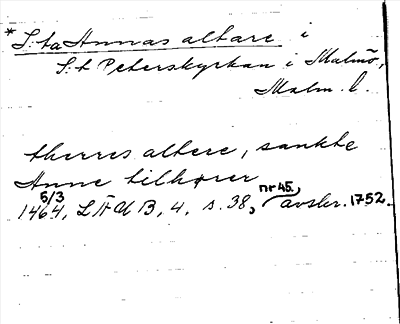 * S:ta Annas altare i
S:t Peterskyrkan i Malmö,
Malm. l.
therres altere, sankte
Anne tilhører
5/3 1464, LÄUB, 4, s. 38, nr 45, avskr. 1752.